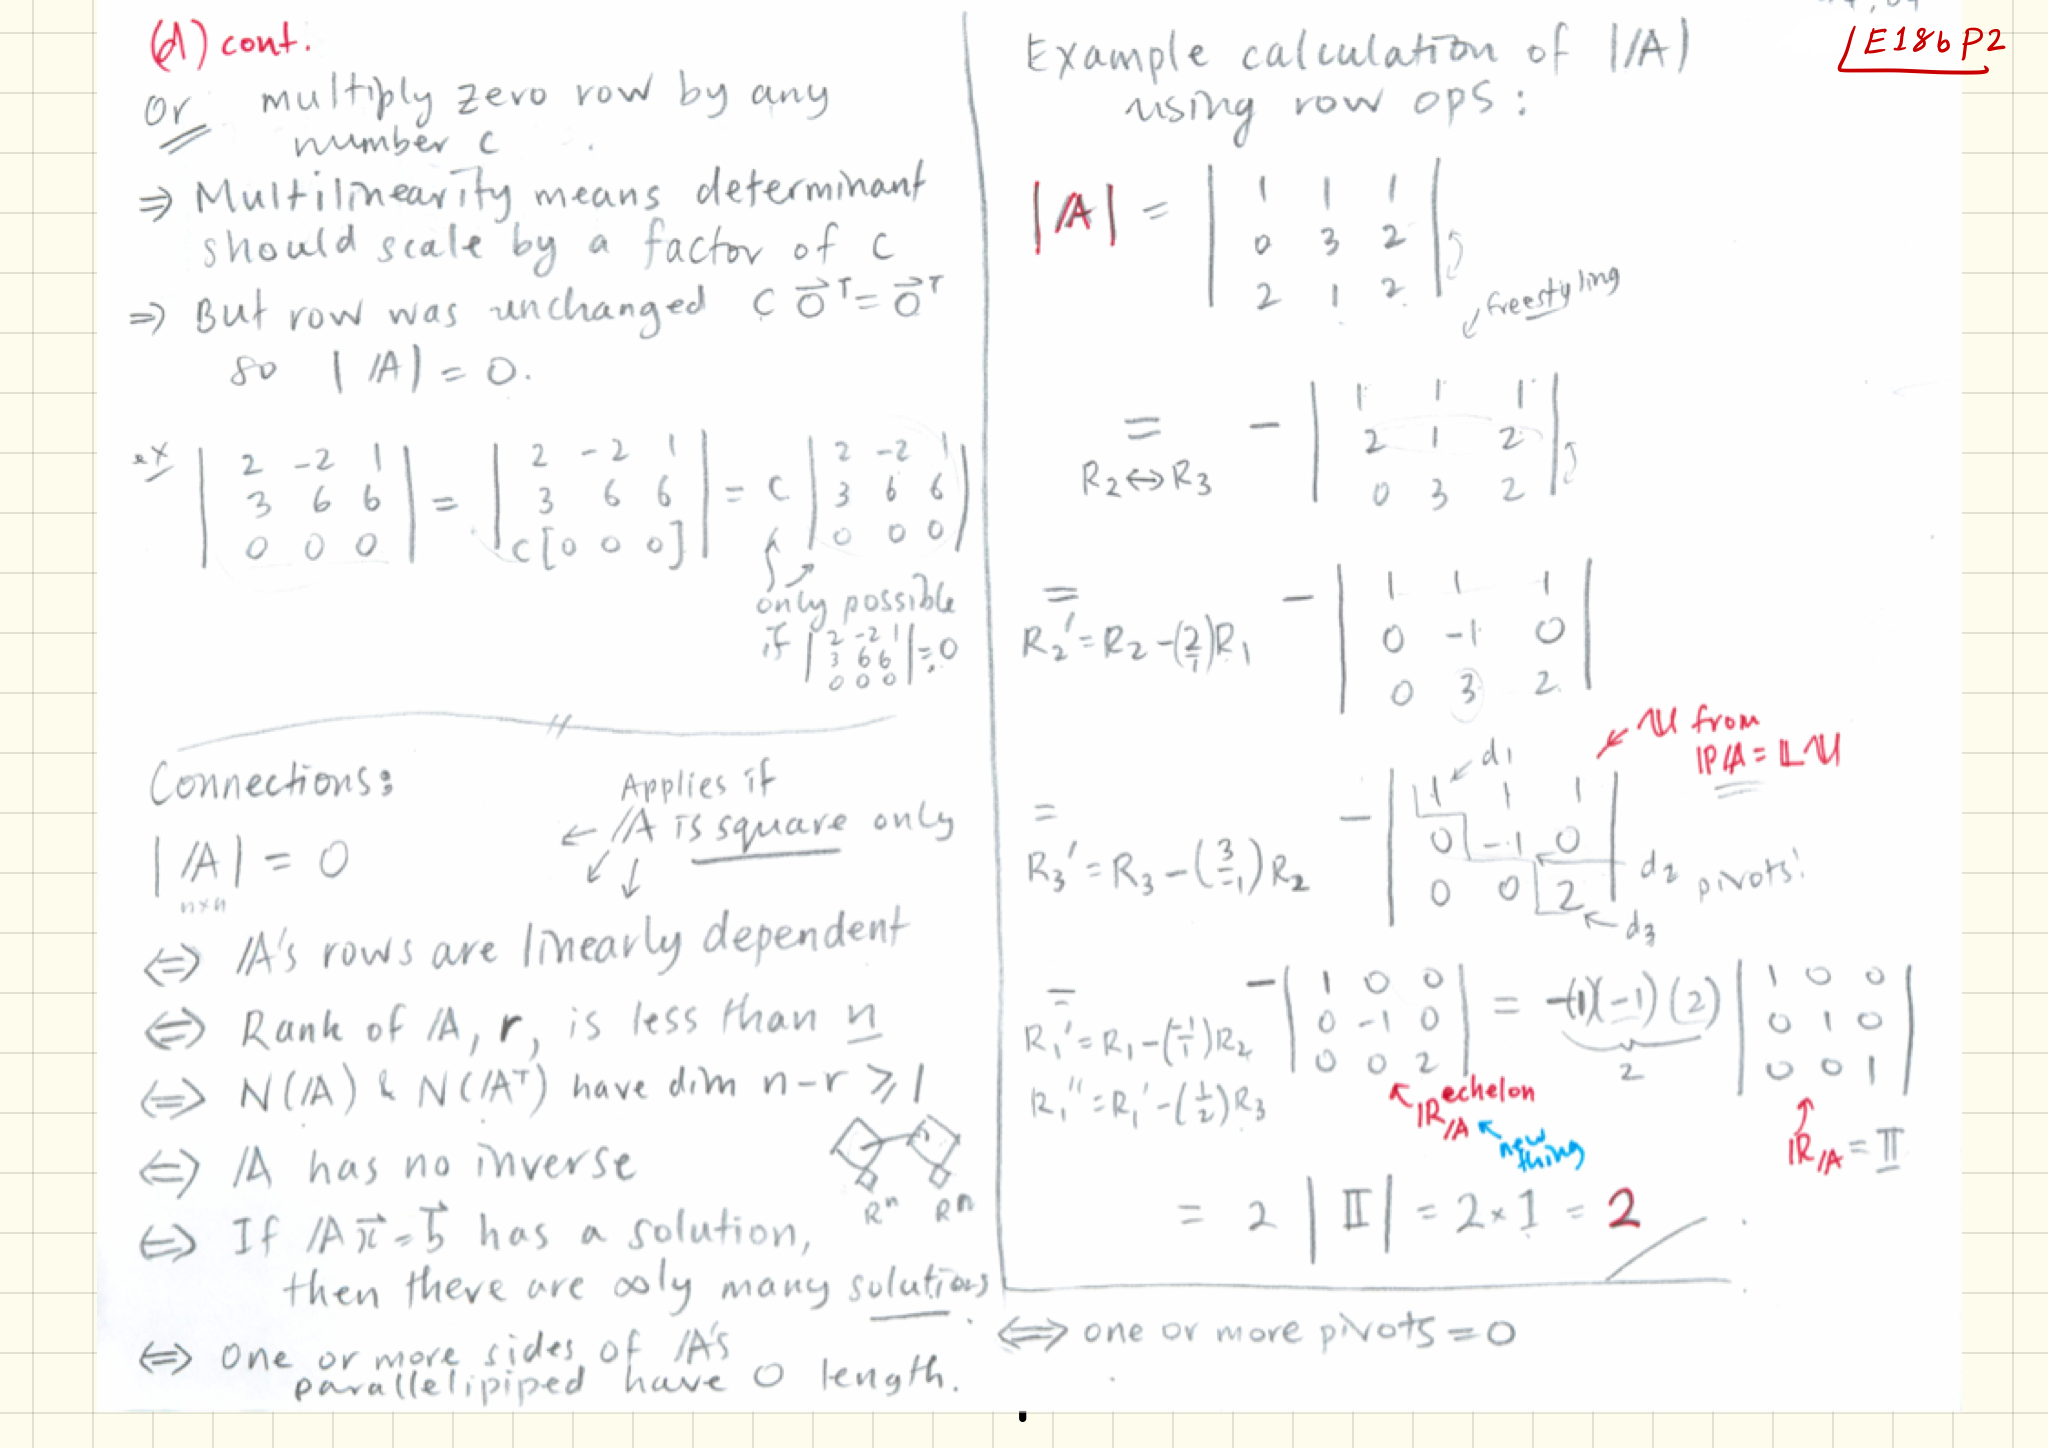 (d) cont.
or multiply zero row by any
number c
⇒ Multilinearity means determinant
should scale by a factor of c
⇒ But row was unchanged c 0⃗ᵀ = 0⃗ᵀ
so |A| = 0.
ex | 2 -2 1 | = | 2 -2 1 | = c | 2 -2 1 |
| 3 6 6 | | 3 6 6 | | 3 6 6 |
| 0 0 0 | | c[0 0 0] | | 0 0 0 |
only possible
if | 2 -2 1 | = 0
| 3 6 6 |
| 0 0 0 |
Connections:
Applies if
← A is square only
|A| = 0
n×n
⇔ A's rows are linearly dependent
⇔ Rank of A, r, is less than n
⇔ N(A) & N(Aᵀ) have dim n-r ⩾ 1
⇔ A has no inverse
Rⁿ Rⁿ
⇔ If A x⃗ = b⃗ has a solution,
then there are ∞ly many solutions.
⇔ One or more sides of A's
parallelipiped have 0 length.
E18b P2
Example calculation of |A|
using row ops:
|A| = | 1 1 1 |
| 0 3 2 |
| 2 1 2 |
freestyling
= - | 1 1 1 |
R₂↔R₃ | 2 1 2 |
| 0 3 2 |
= - | 1 1 1 |
R₂' = R₂ - (2/1)R₁ | 0 -1 0 |
| 0 3 2 |
U from
PA = LU
d₁
= - | 1 1 1 |
| 0 -1 0 |
R₃' = R₃ - (3/-1)R₂ | 0 0 2 | d₂ pivots!
d₃
= - | 1 0 0 | = -(1)(-1)(2) | 1 0 0 |
R₁' = R₁ - (-1/1)R₂ | 0 -1 0 | 2 | 0 1 0 |
R₁'' = R₁' - (1/2)R₃ | 0 0 2 | | 0 0 1 |
R_A echelon
new thing
R_A = I
= 2 |I| = 2 × 1 = 2
⇔ one or more pivots = 0